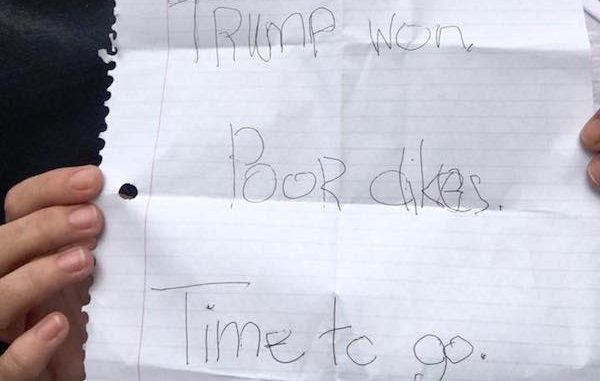 TRUMP won.
Poor dikes.
Time to go.